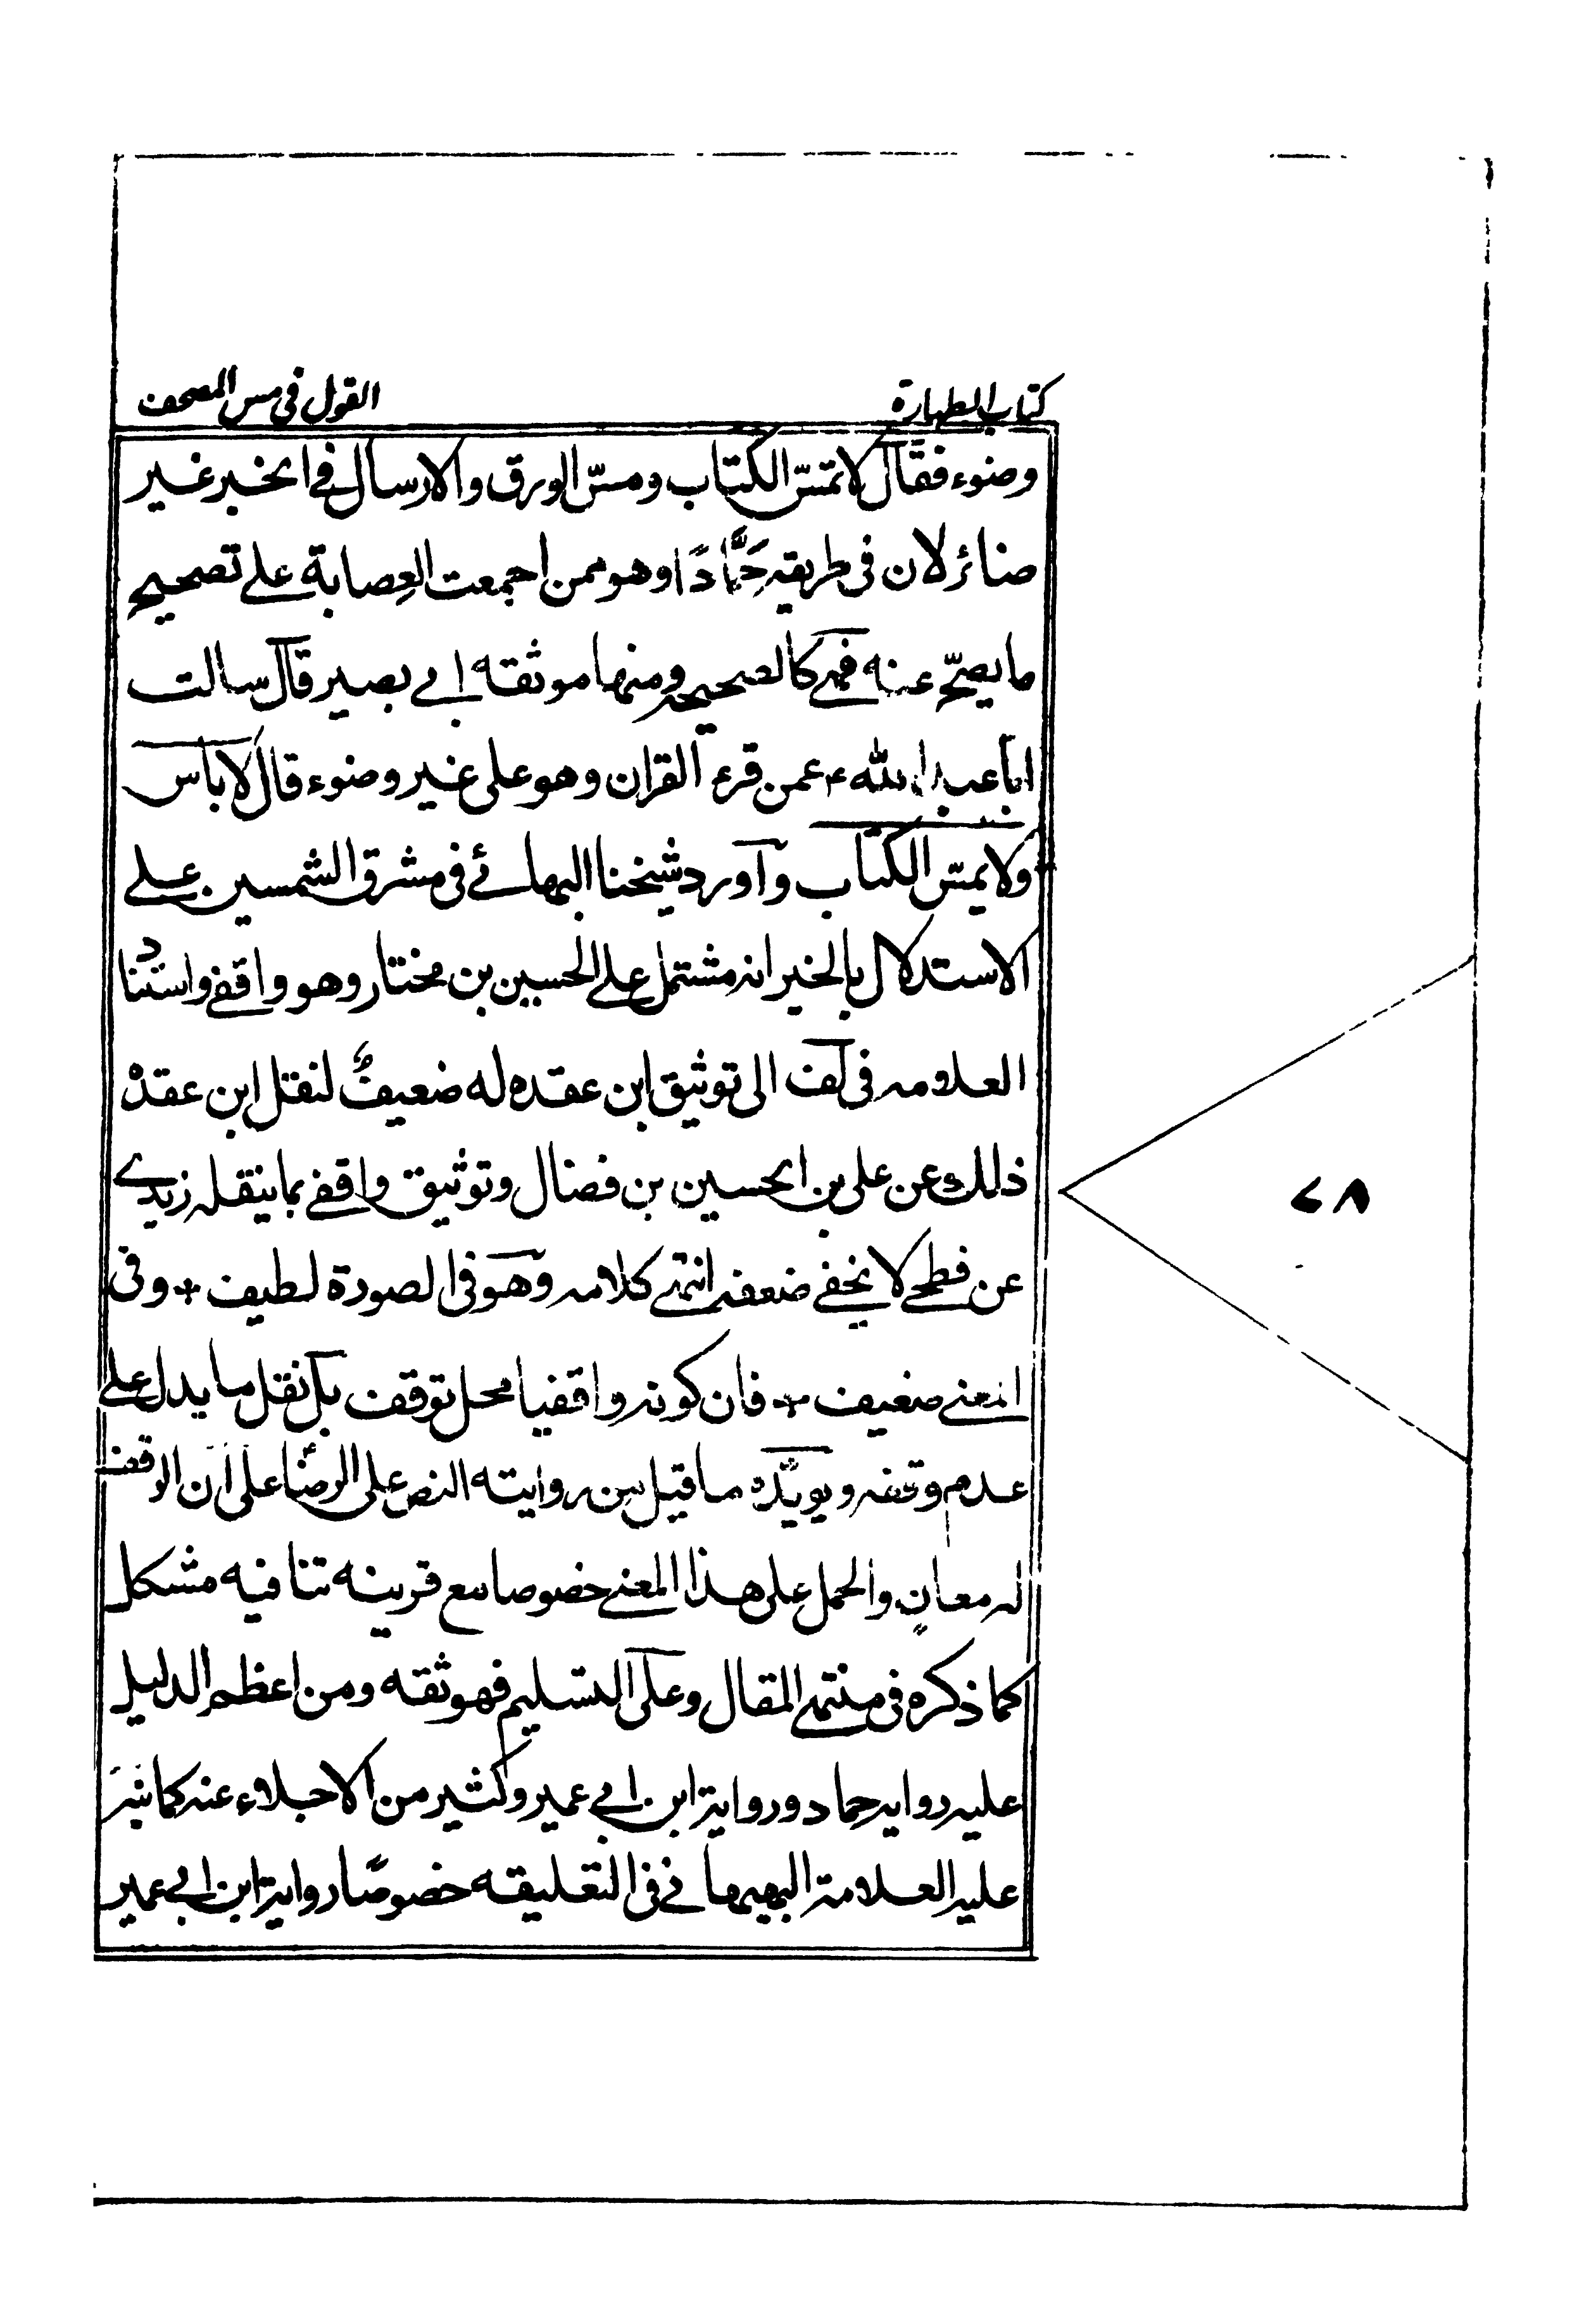 كتاب الطهارة
القول في مس المصحف
وضوء فقال لا تمسّ الكتاب ومسّ الورق والارسال في الخبر غير
ضائر لان في طريقه حمَّادًا وهو ممن اجمعت العِصابة على تصحيح
ما يصحّ عنه فهي كالصحيحه ومنها موثقه ابي بصير قال سالت
ابا عبد الله ع عمن قرء القران وهو على غير وضوء قال لا باس
ولا يمسّ الكتاب واورد شيخنا البهائي في مشرق الشمسين على
الاستدلال بالخبر انه مشتمل على الحسين بن مختار وهو واقفي واستناد
العلامه في لف الى توثيق ابن عقده له ضعيفٌ لنقل ابن عقده
ذلك عن علي بن الحسين بن فضال وتوثيق واقفي بما ينقله زيدي
عن فطحي لا يخفى ضعفه انتهى كلامه وهو في الصورة لطيف * وفي
المعنى ضعيف * فان كونه واقفيا محل توقف بل نقل ما يدل على
عدم وقفه ويويّده ما قيل من روايته النص على الرضا على ان الوقف
له معانٍ والحمل على هذا المعنى خصوصا مع قرينه تنافيه مشكل
كما ذكره في منتهى المقال وعلى التسليم فهو ثقه ومن اعظم الدليل
عليه روايه حماد ورواية ابن ابي عمير وكثير من الاجلاء عنه كما نبّه
عليه العلامة البهبهاني في التعليقه خصوصًا رواية ابن ابي عمير
٦٨